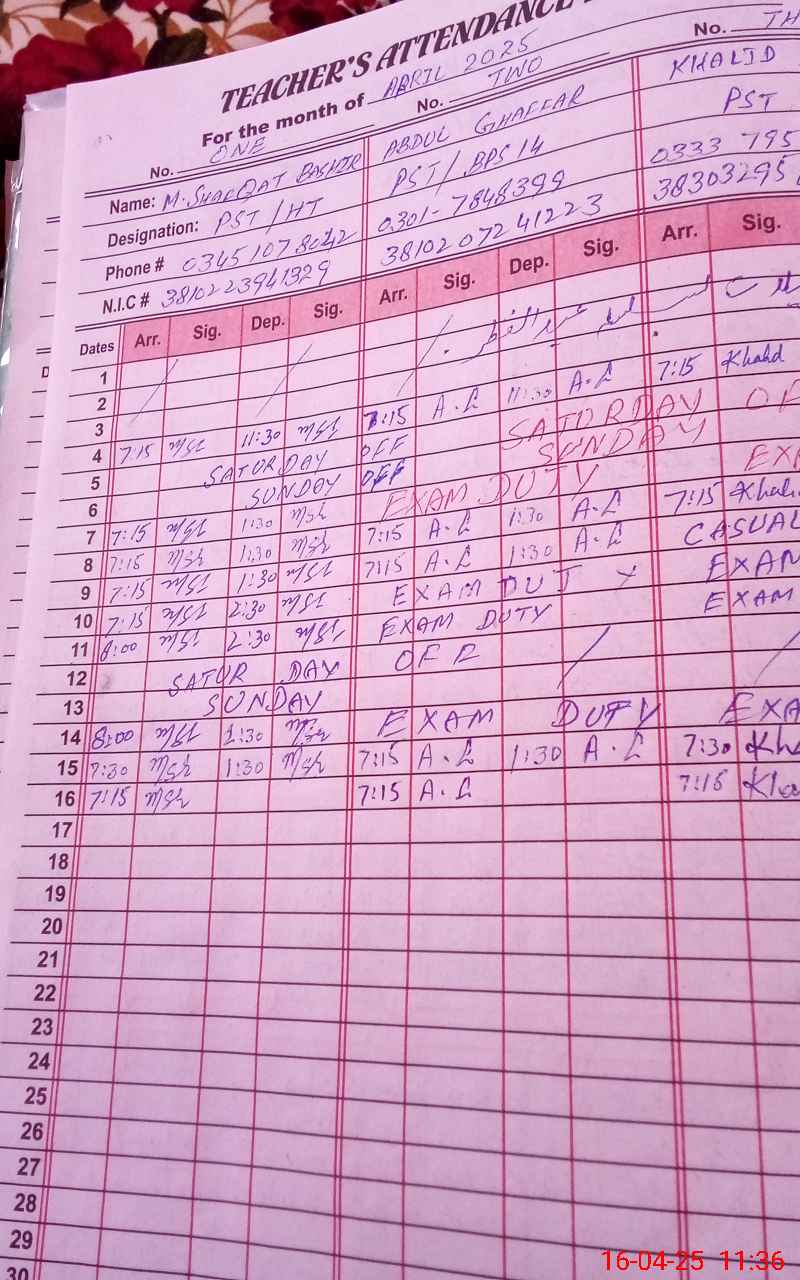 TEACHER'S ATTENDANCE
For the month of APRIL 2025
No. ONE No. TWO No. TH
Name: M. SHAFQAT BASHIR ABDUL GHAFFAR KHALID
Designation: PST / HT PST / BPS 14 PST
Phone # 0345 107 8042 0301-7848399 0333 795
N.I.C # 3810223941329 38102 072 41223 38303295
Dates Arr. Sig. Dep. Sig. Arr. Sig. Dep. Sig. Arr. Sig.
1 عید الفطر
2
3
4 7:15 11:30 7:15 A.L 11:30 A.L 7:15 Khalid
5 SATORDAY OFF SATORDAY OF
6 SUNDAY OFF SUNDAY
7 7:15 1:30 EXAM DUTY EXA
8 7:15 1:30 7:15 A.L 1:30 A.L 7:15 Khali
9 7:15 1:30 7:15 A.L 1:30 A.L CASUAL
10 7:15 1:30 EXAM DUTY EXAM
11 8:00 1:30 EXAM DUTY EXAM
12 SATUR DAY OFF
13 SUNDAY
14 8:00 1:30 EXAM DUTY EXA
15 7:30 1:30 7:15 A.L 1:30 A.L 7:30 Kha
16 7:15 7:15 A.L 7:15 Kha
17
18
19
20
21
22
23
24
25
26
27
28
29
30
16-04-25 11:36